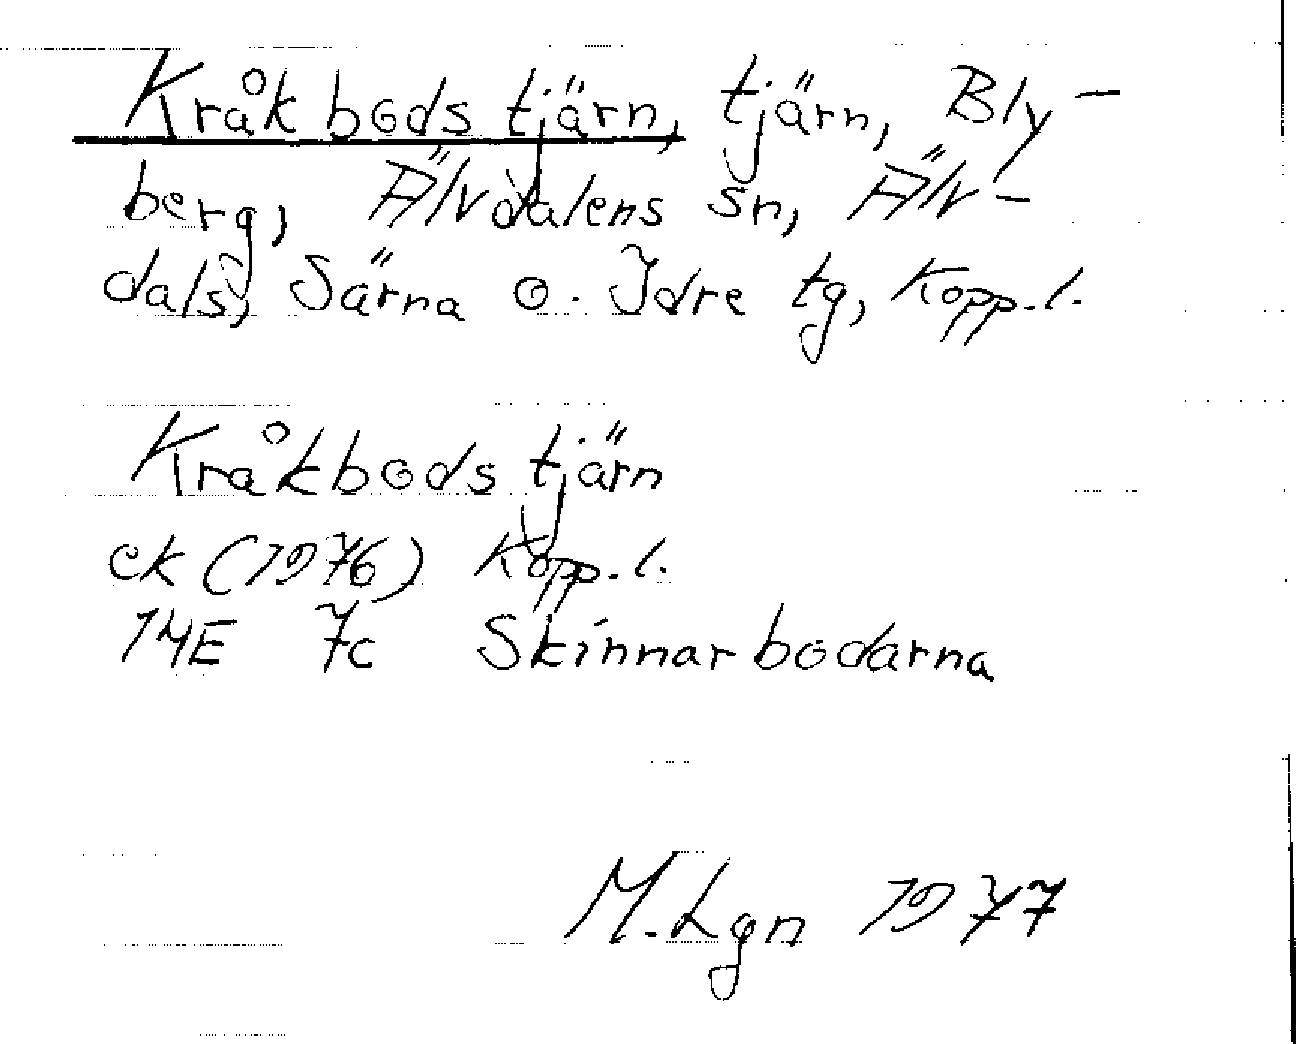 Kråkbodstjärn, tjärn, Bly-
berg, Älvdalens sn, Älv-
dals, Särna o. Idre tg, Kopp.l.
Kråkbodstjärn
ek (1976) Kopp.l.
14E 7c Skinnarbodarna
M.Lgn 1977